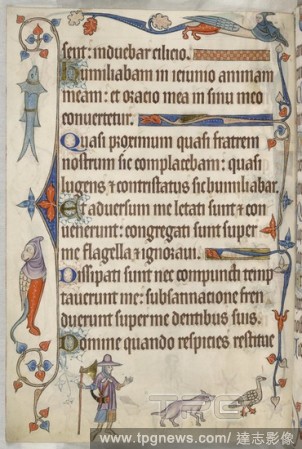 sent: induebar cilicio.
Humiliabam in ieiunio animam
meam: et oracio mea in sinu meo
convertetur.
Quasi proximum quasi fratrem
nostrum sic complacebam: quasi
lugens & contristatus sic humiliabar.
Et adversum me letati sunt & con
venerunt: congregati sunt super
me flagella & ignoravi.
Dissipati sunt nec compuncti temp
taverunt me: subsannacione fren
duerunt super me dentibus suis.
Domine quando respicies restitue
TPG
www.tpgnews.com/ 達志影像